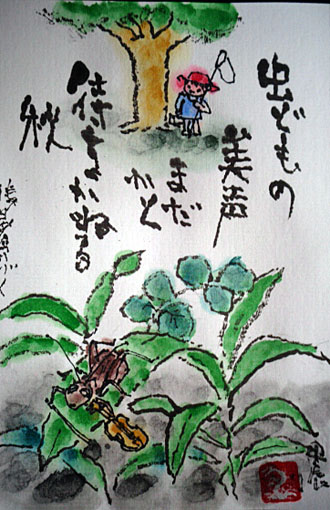 虫どもの
美声
まだ
かと
待ちかねる
秋